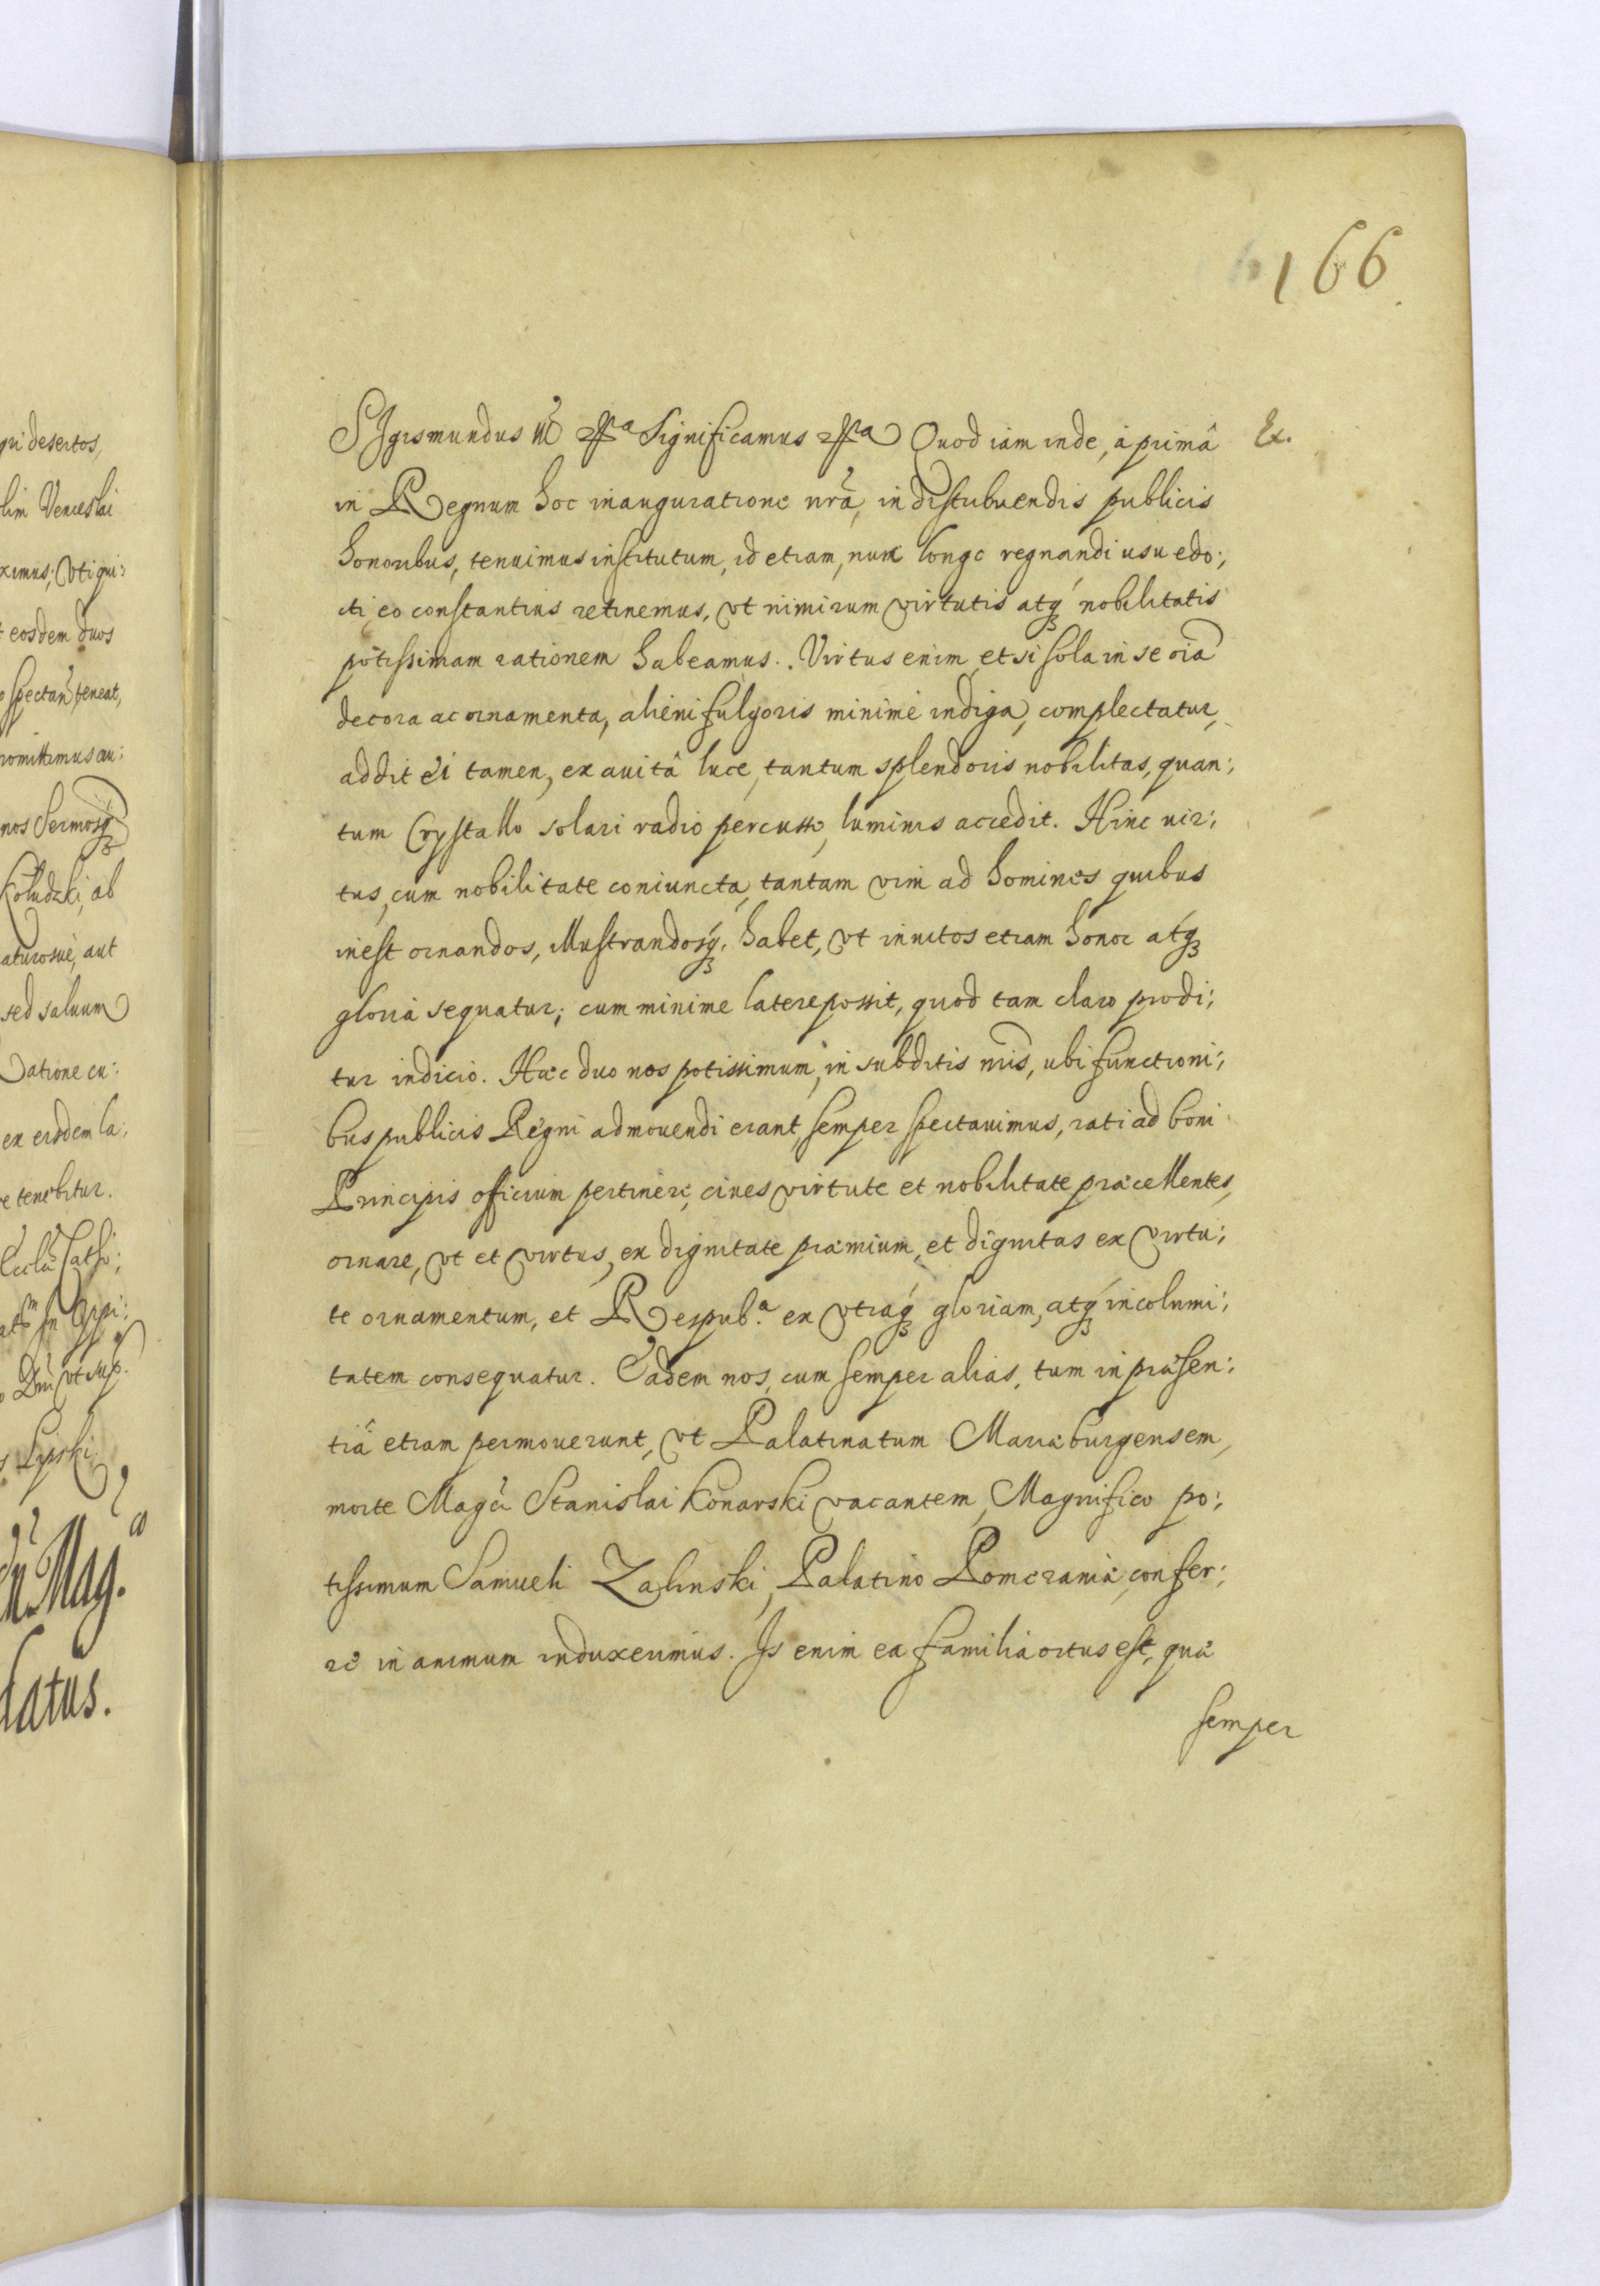 166
SIgismundus III &ª Significamus &ª Quod iam inde, à primâ Ex.
in Regnum hoc inauguratione nrã, in distribuendis publicis
honoribus, tenuimus institutum, id etiam, nunc longo regnandi usu edo:,
cti, eo constantius retinemus, vt nimirum virtutis atq́ꝫ nobilitatis
potissimam rationem habeamus. Virtus enim etsi sola in se oia
decora ac ornamenta, alieni fulgoris minimè indiga, complectatur,
addit ei tamen, ex auitâ luce, tantum splendoris nobilitas, quan:,
tum Crystallo solari radio percusso, luminis accedit. Hinc uir:,
tus, cum nobilitate coniuncta, tantam vim ad homines quibus
inest ornandos, illustrandosq́ꝫ habet, vt inuitos etiam honor atq́ꝫ
gloria sequatur; cum minime latere possit, quod tam claro prodi:,
tur indicio. Hæc duo nos potissimum, in subditis nris, ubi functioni:,
bus publicis Regni admouendi erant semper spectauimus, rati ad boni
Principis officium pertinere, ciues virtute et nobilitate præcellentes,
ornare, vt et virtus, ex dignitate præmium, et dignitas ex virtu:,
te ornamentum, et Respub.ª ex vtraq́ꝫ gloriam, atq́ꝫ incolumi:,
tatem consequatur. Eadem nos, cum semper alias, tum in præsen:,
tiâ etiam permouerunt, vt Palatinatum Mariæburgensem,
morte Magci Stanislai Konarski vacantem, Magnifico po:,
tissimum Samueli Zalinski, Palatino Pomeraniæ, confer:,
re in animum induxerimus. Is enim ea familia ortus est, quæ
semper
qui desertos,
Venceslai
ximus; Vti qui:
eosdem duos
spectan̄ teneat,
romittimus au:
nos Sermosq́ꝫ
Koludzki, ab
aturosuè, aut
sed saluum
Ratione cu:
ex eisdem la:
tenebitur.
Dni vt sup.
Lipski
Mag.
latus.